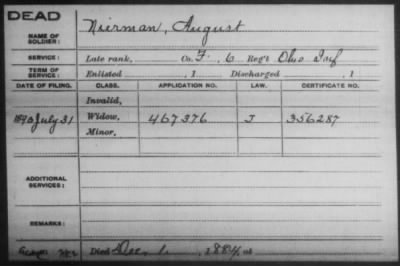 DEAD
NAME OF SOLDIER: Nierman, August
SERVICE: Late rank, Co. F, 6 Reg't Ohio Inf
TERM OF SERVICE: Enlisted , 1 Discharged , 1
DATE OF FILING. CLASS. APPLICATION NO. LAW. CERTIFICATE NO.
Invalid,
1890 July 31 Widow, 467376 J 356287
Minor,
ADDITIONAL SERVICES:
REMARKS:
Died Dec. 1, 1884, at